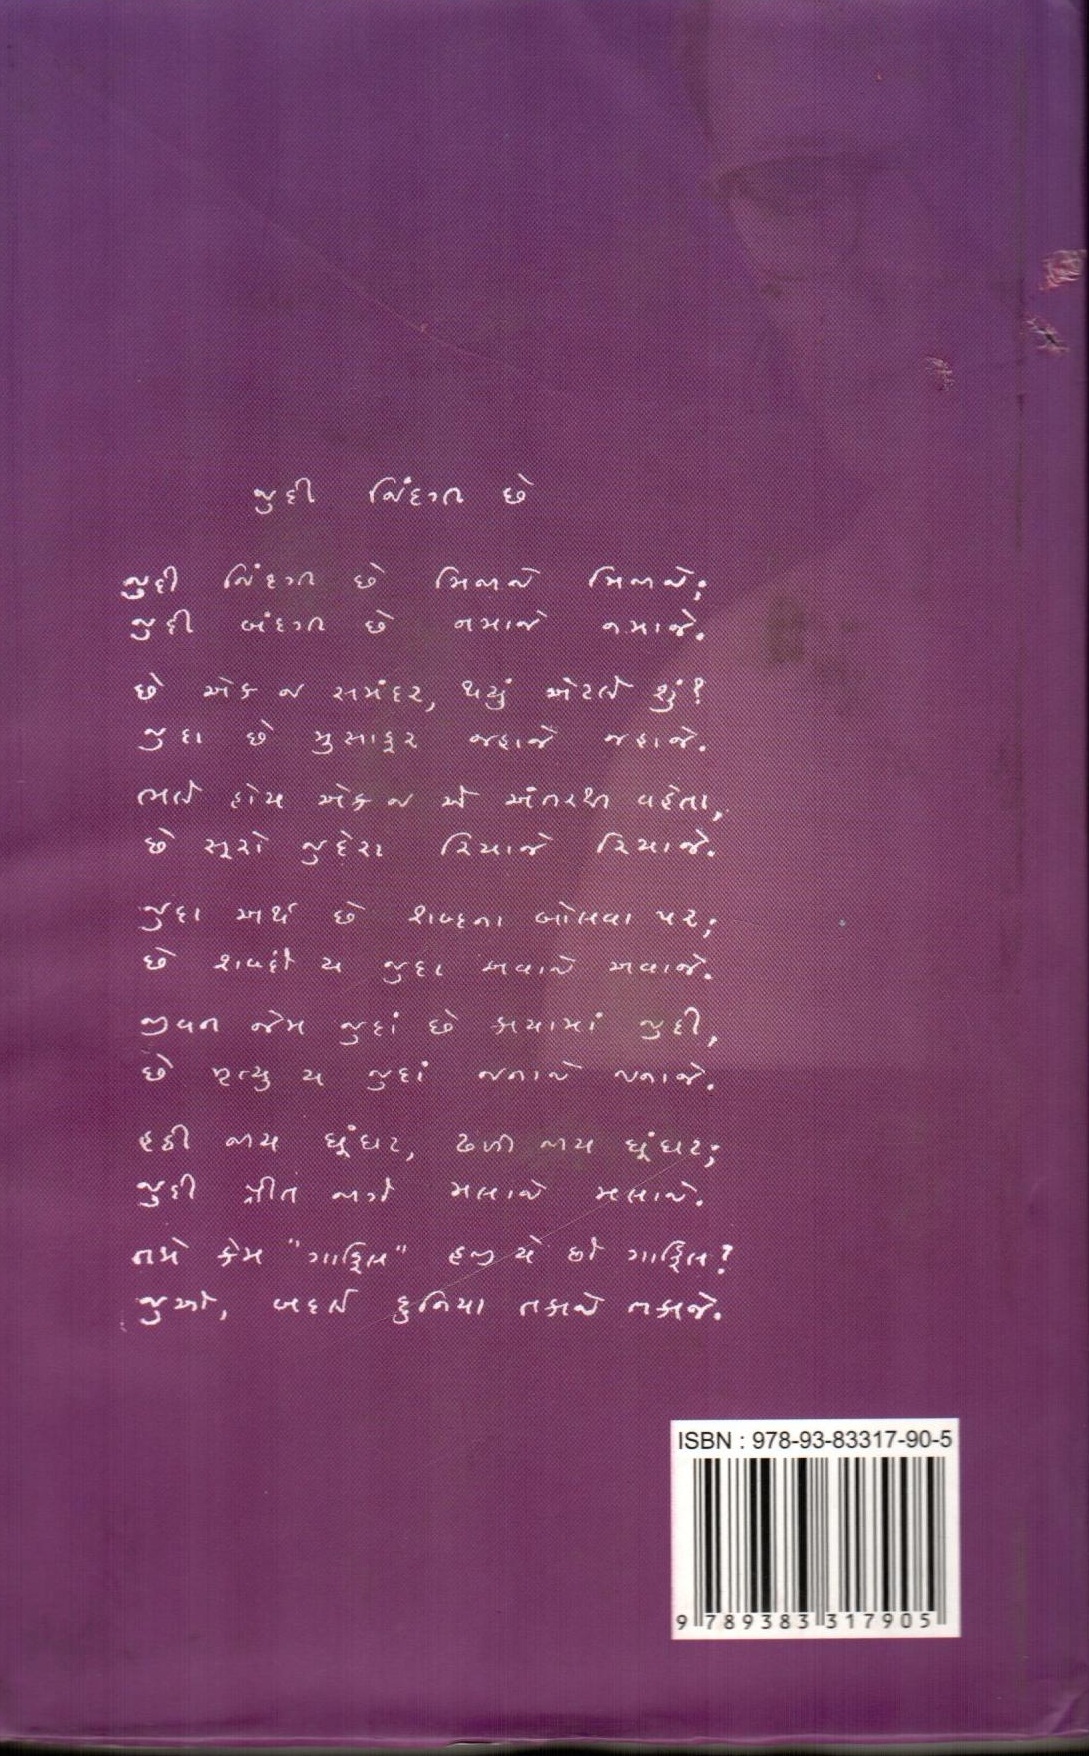 જુદી જિંદગી છે
જુદી જિંદગી છે મિજાજે મિજાજે;
જુદી બંદગી છે નમાજે નમાજે.
છે એક જ સમંદર, થયું એટલે શું?
જુદા છે મુસાફર જહાજે જહાજે.
ભલે હોય એક જ એ અંતરથી વહેતા,
છે સૂરો જુદેરા રિયાજે રિયાજે.
જુદા અર્થ છે શબ્દના બોલવા પર;
છે શબ્દો ય જુદા અવાજે અવાજે.
જીવન જેમ જુદાં છે કાયામાં જુદી,
છે મૃત્યુ ય જુદાં જનાજે જનાજે.
હઠી જાય ઘૂંઘટ, ઢળી જાય ઘૂંઘટ;
જુદી પ્રીત જાગે મલાજે મલાજે.
તમે કેમ "ગાફિલ" હજી યે છો ગાફિલ?
જુઓ, બદલે દુનિયા તકાજે તકાજે.
ISBN : 978-93-83317-90-5
9 789383 317905